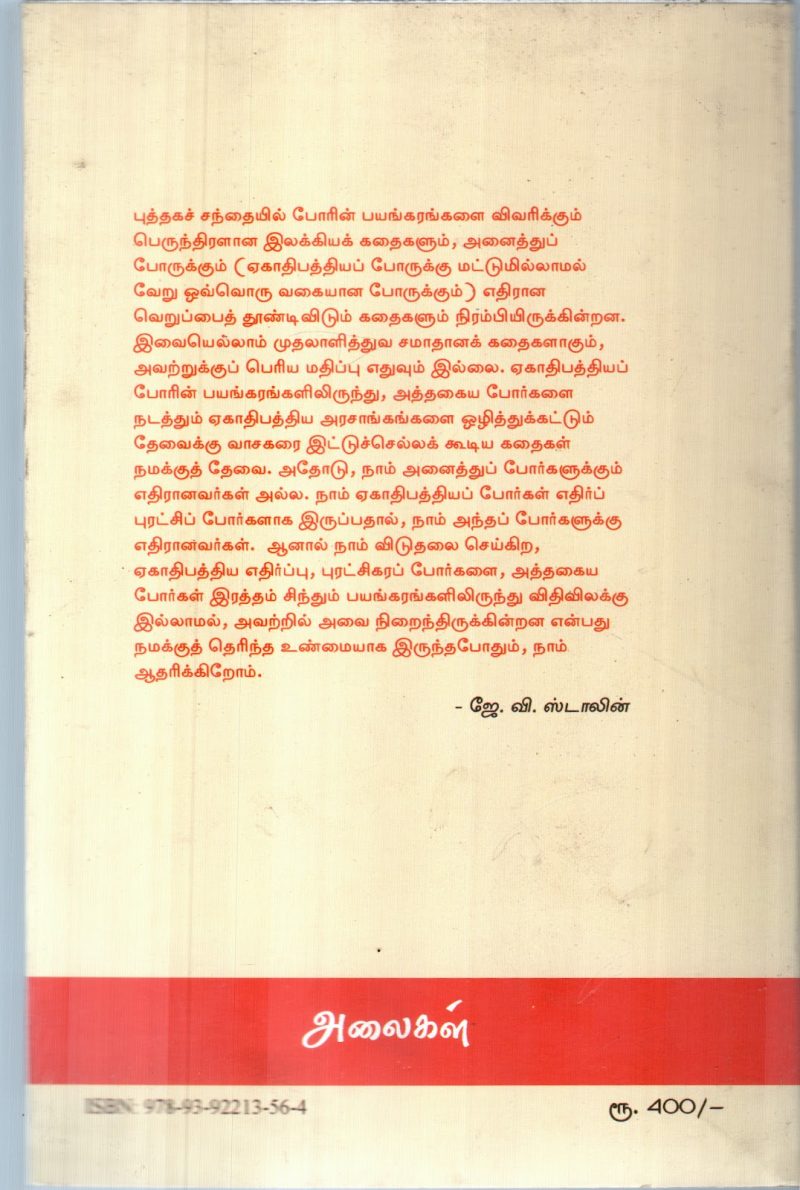 புத்தகச் சந்தையில் போரின் பயங்கரங்களை விவரிக்கும்
பெருந்திரளான இலக்கியக் கதைகளும், அனைத்துப்
போருக்கும் (ஏகாதிபத்தியப் போருக்கு மட்டுமில்லாமல்
வேறு ஒவ்வொரு வகையான போருக்கும்) எதிரான
வெறுப்பைத் தூண்டிவிடும் கதைகளும் நிரம்பியிருக்கின்றன.
இவையெல்லாம் முதலாளித்துவ சமாதானக் கதைகளாகும்,
அவற்றுக்குப் பெரிய மதிப்பு எதுவும் இல்லை. ஏகாதிபத்தியப்
போரின் பயங்கரங்களிலிருந்து, அத்தகைய போர்களை
நடத்தும் ஏகாதிபத்திய அரசாங்கங்களை ஒழித்துக்கட்டும்
தேவைக்கு வாசகரை இட்டுச்செல்லக் கூடிய கதைகள்
நமக்குத் தேவை. அதோடு, நாம் அனைத்துப் போர்களுக்கும்
எதிரானவர்கள் அல்ல. நாம் ஏகாதிபத்தியப் போர்கள் எதிர்ப்
புரட்சிப் போர்களாக இருப்பதால், நாம் அந்தப் போர்களுக்கு
எதிரானவர்கள். ஆனால் நாம் விடுதலை செய்கிற,
ஏகாதிபத்திய எதிர்ப்பு, புரட்சிகரப் போர்களை, அத்தகைய
போர்கள் இரத்தம் சிந்தும் பயங்கரங்களிலிருந்து விதிவிலக்கு
இல்லாமல், அவற்றில் அவை நிறைந்திருக்கின்றன என்பது
நமக்குத் தெரிந்த உண்மையாக இருந்தபோதும், நாம்
ஆதரிக்கிறோம்.
- ஜே. வி. ஸ்டாலின்
அலைகள்
ISBN: 978-93-92213-56-4
ரூ. 400/-